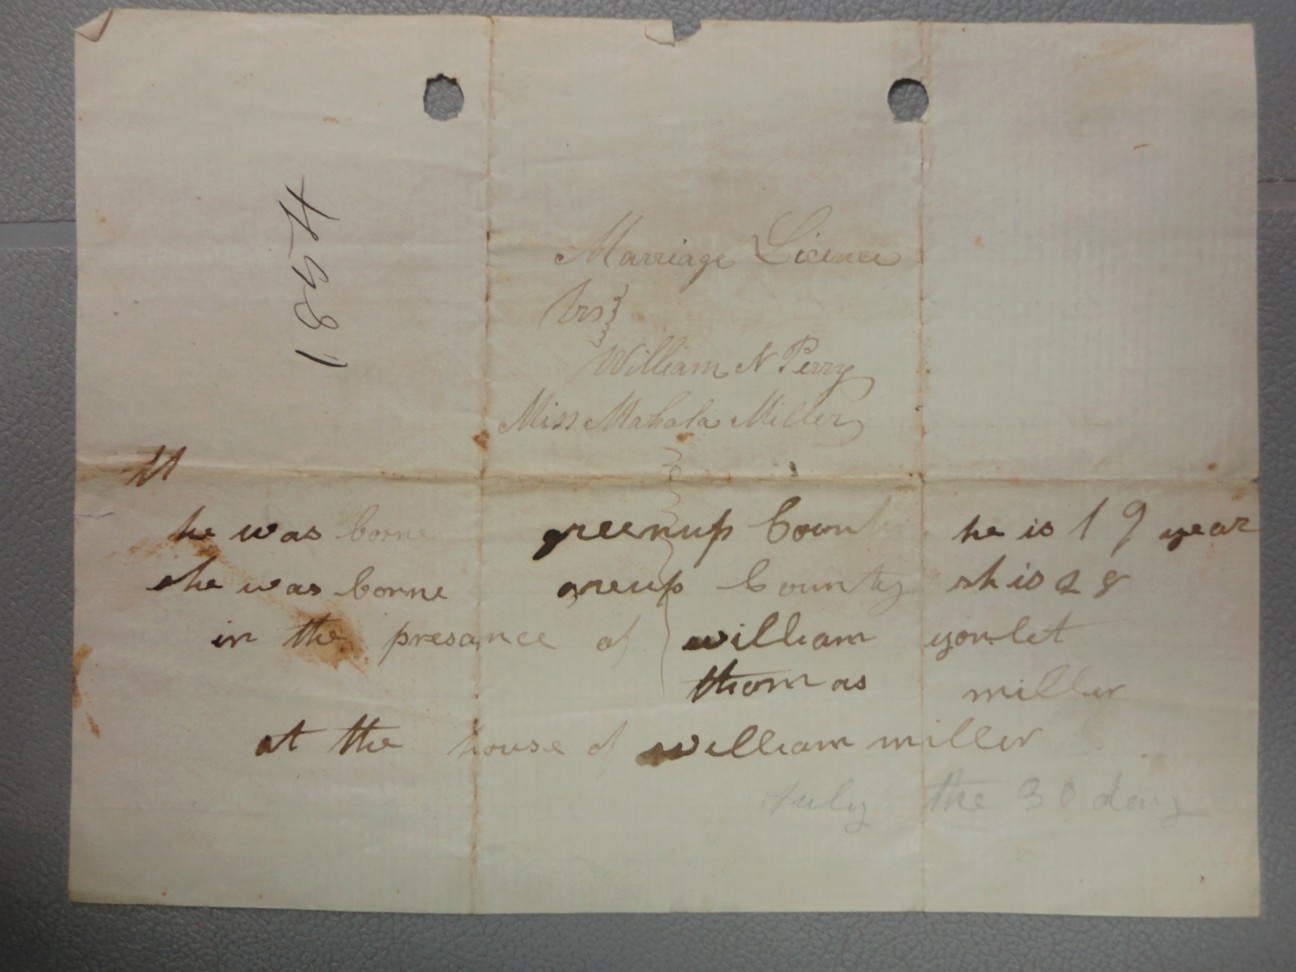 1854
Marriage Licence
William N Perry
Miss Mahala Miller
he was borne greenup County he is 19 year
she was borne greup County sh is 28
in the presance of william yonlet
thomas miller
at the house of william miller
July the 30 day